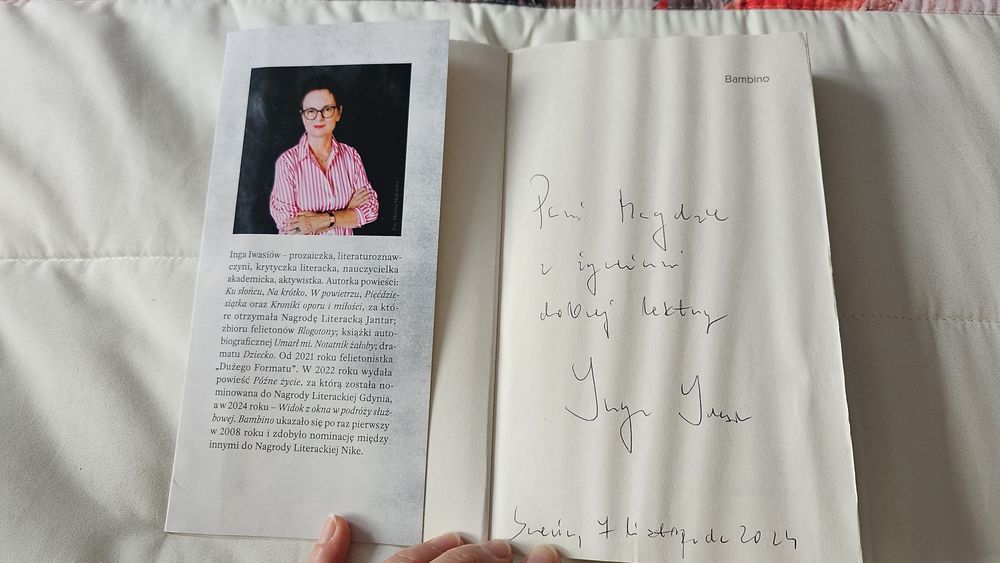 Inga Iwasiów – prozaiczka, literaturoznaw-
czyni, krytyczka literacka, nauczycielka
akademicka, aktywistka. Autorka powieści:
Ku słońcu, Na krótko, W powietrzu, Pięćdzie-
siątka oraz Kroniki oporu i miłości, za któ-
re otrzymała Nagrodę Literacką Jantar;
zbioru felietonów Blogotony; książki auto-
biograficznej Umarł mi. Notatnik żałoby; dra-
matu Dziecko. Od 2021 roku felietonistka
„Dużego Formatu”. W 2022 roku wydała
powieść Późne życie, za którą została no-
minowana do Nagrody Literackiej Gdynia,
a w 2024 roku – Widok z okna w podróży służ-
bowej. Bambino ukazało się po raz pierwszy
w 2008 roku i zdobyło nominację między
innymi do Nagrody Literackiej Nike.
Bambino
Pani Magdzie
z życzeniami
dobrej lektury
Inga Iwasiów
Szczecin, 7 listopada 2024